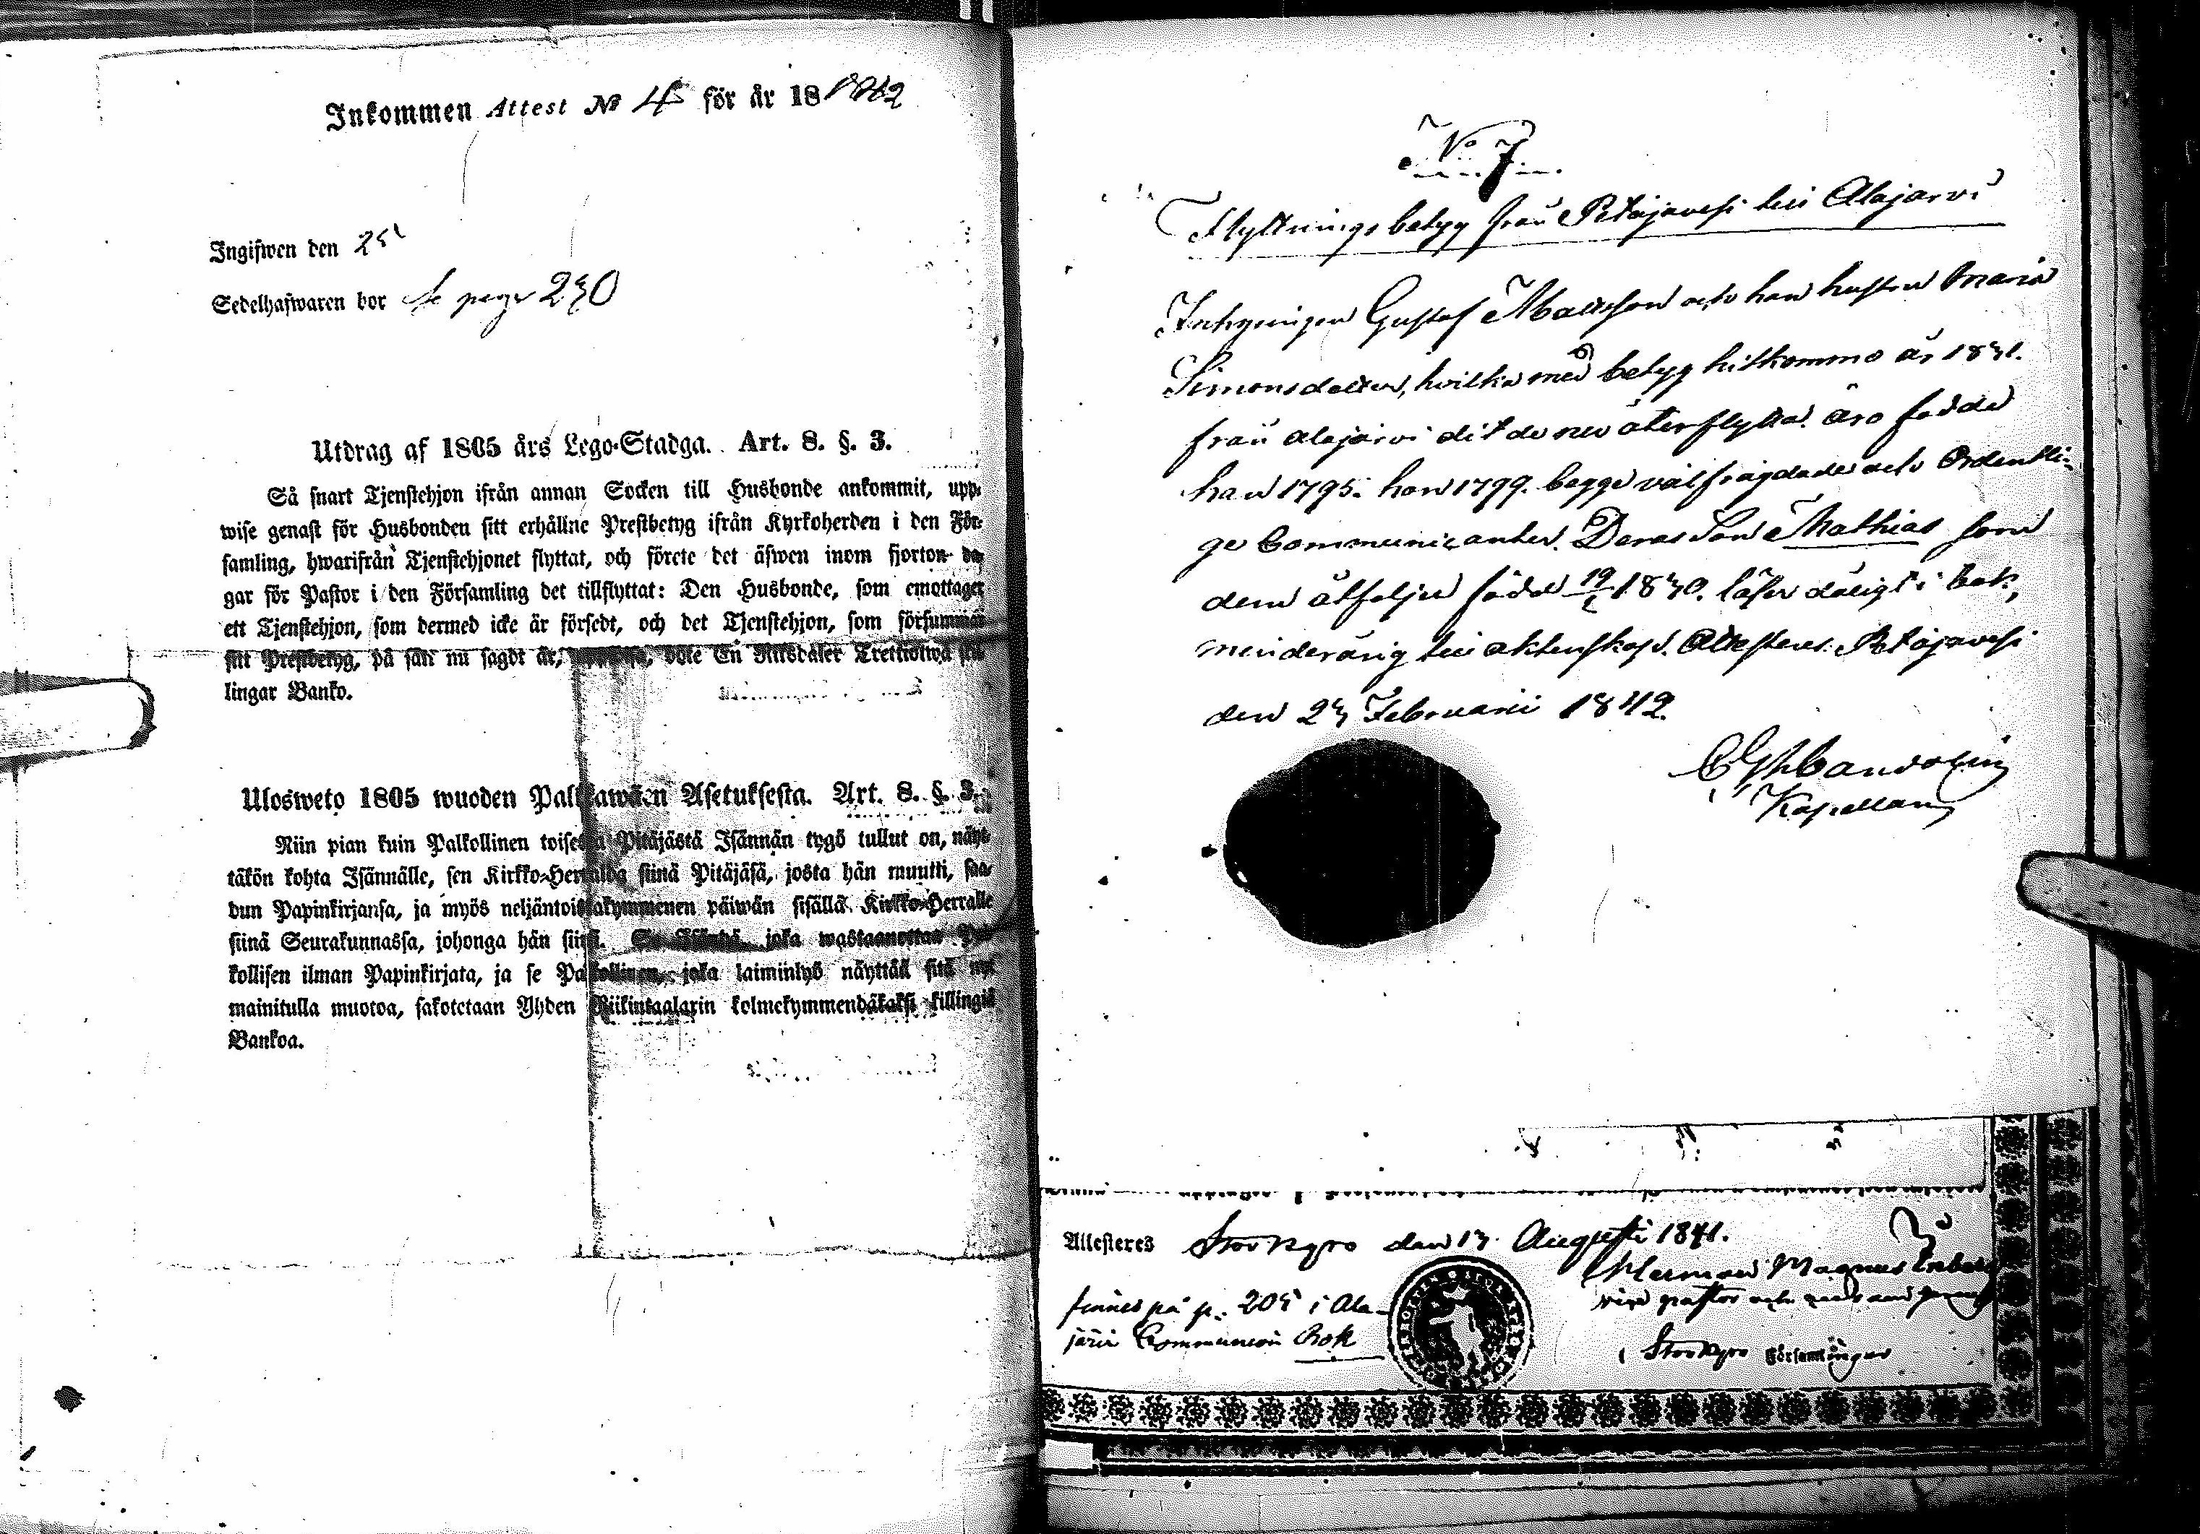 Inkommen Attest № 4 för år 18 1842
Ingifwen den 25
Sedelhafwaren bor se page 230
Utdrag af 1805 års Lego-Stadga. Art. 8. §. 3.
Så snart Tjenstehjon ifrån annan Socken till Husbonde ankommit, upp-
wise genast för Husbonden sitt erhållne Prestbetyg ifrån Kyrkoherden i den För-
samling, hwarifrån Tjenstehjonet flyttat, och förete det äfwen inom fjorton da-
gar för Pastor i den Församling det tillflyttat: Den Husbonde, som emottager
ett Tjenstehjon, som dermed icke är försedt, och det Tjenstehjon, som försummar
sitt Prestbetyg, på sätt nu sagdt är, böte En Riksdaler Trettiotwå skil-
lingar Banko.
Ulosweto 1805 wuoden Palkkawäen Asetuksesta. Art. 8. §. 3.
Niin pian kuin Palkollinen toisesta Pitäjästä Isännän tygö tullut on, näyt-
täkön kohta Isännälle, sen Kirkko-Herralda siinä Pitäjäsä, josta hän muutti, saa-
dun Papinkirjansa, ja myös neljäntoistakymmenen päiwän sisällä Kirkko-Herralle
siinä Seurakunnassa, johonga hän siirsi. Se Isäntä, joka wastaanottaa Pal-
kollisen ilman Papinkirjata, ja se Palkollinen, joka laiminlyö näyttää sitä nyt
mainitulla muotoa, sakotetaan Yhden Riikintaalarin kolmekymmendäkaksi killingiä
Bankoa.
No 7
Flyttnings betyg från Petäjävesi till Alajärvi
Inhysingen Gustaf Mattsson och han hustru Maria
Simonsdotter, hvilka med betyg hitkommo år 1831.
från Alajärvi dit de nu återflytta. äro födde
han 1795. hon 1799. begge välfrägdade och Ordentli-
ge Communicanter. Deras Son Mathias som
dem åtföljer född 19/ 1830. läser dåligt i bok,
minderårig till äktenskap. Attesterar. Petäjävesi
den 23 Februarii 1842.
Kapellan
Attesteres Storkyro den 13 Augusti 1841.
Herman Magnus
vice pastor och
finnes på p. 205 i Ala-
järvi Communion Bok
i Storkyro Församlingar